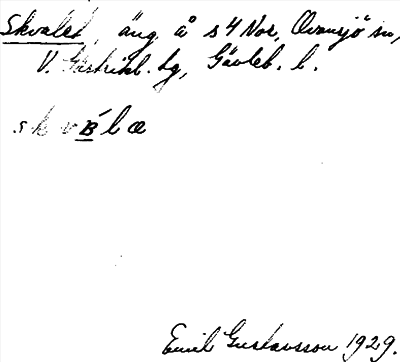 Skvalet, äng å s4 Nor, Ovansjö sn,
V. Gästrikl. tg, Gävleb. l.
skvɒ́læ
Emil Gustavsson 1929.